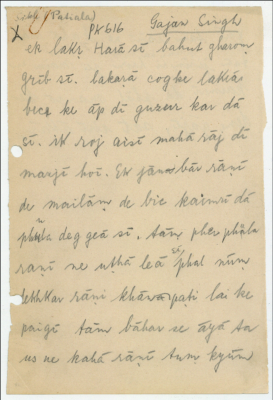 (Patiala)
X PK616 Gajan Singh
ek lakṛ Harā sī bahut gharom
grīb sī. lakaṛā cogke lakkās
beca ke āp dī guzerr kar dā
sī. ik roj aisī mahā rāj dī
marjī hoī. Ek jān bār rāṇī
de mailām de bic kaimrī dā
phula deg geā sī. tām pher phula
raṇī ne uṭhā leā phal nūm
dekhkar rāṇī paṭi lai ke
paigī tām bāhar se āyā tā
us ne kahā rāṇī tum kyūm